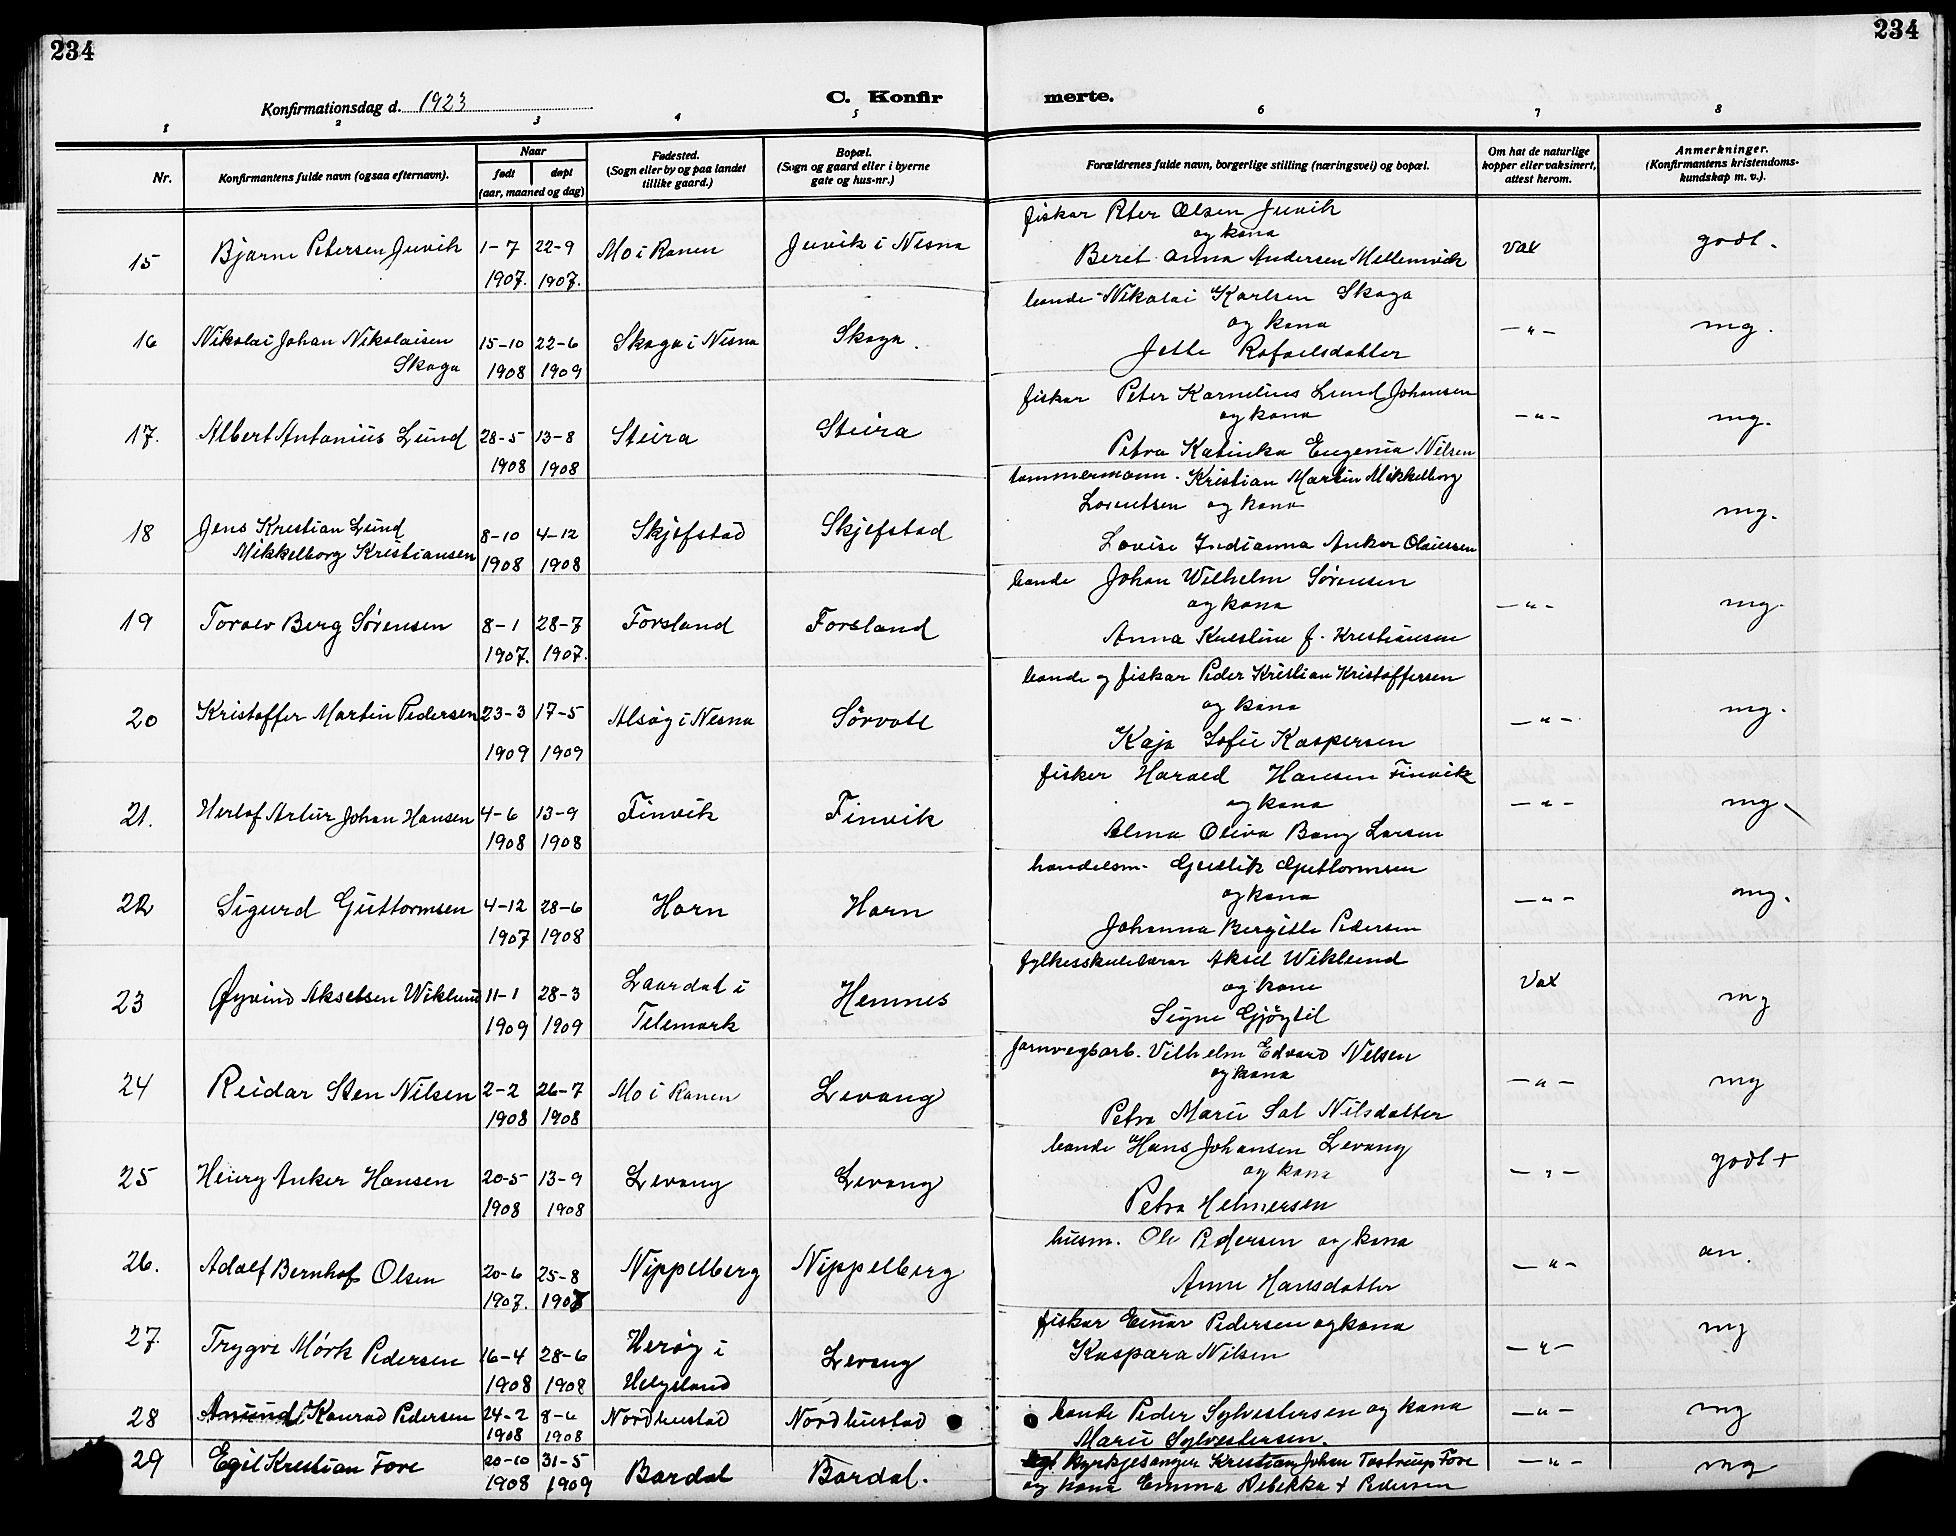 234
234
Konfirmationsdag d. 1923
C. Konfir
merte.
1 2 3 4 5 6 7 8
Nr.
Konfirmantens fulde navn (ogsaa efternavn).
Naar
født døpt
(aar, maaned og dag)
Fødested.
(Sogn eller by og paa landet
tillike gaard.)
Bopæl.
(Sogn og gaard eller i byerne
gate og hus-nr.)
Forældrenes fulde navn, borgerlige stilling (næringsvei) og bopæl.
Om hat de naturlige
kopper eller vaksinert,
attest herom.
Anmerkninger.
(Konfirmantens kristendoms-
kundskap m. v.).
fiskar Peter Olsen Juvik
15 Bjarne Petersen Juvik 1-7 22-9 Mo i Ranen Juvik i Nesna og kona Vax godt.
1907. 1907. Beret Anna Andersen Mellemvik
bonde Nikolai Karlsen Skaga
16 Nikolai Johan Nikolaisen 15-10 22-6 Skaga i Nesna Skaga. og kona -"- mg.
Skaga 1908 1909 Jette Rafaelsdatter
fiskar Peter Kornelius Lund Johansen
17. Albert Antonius Lund 28-5 13-8 Steira Steira og kona -"- mg.
1908 1908 Petra Katinka Eugenia Nilsen
tommermann. Kristian Martin Mikkelborg
18 Jens Kristian Lund 8-10 4-12 Skjefstad Skjefstad Lorentsen og kona mg.
Mikkelborg Kristiansen 1908 1908 Lovise Indianna Anker Olaisen
bonde Johan Wilhelm Sørensen
19 Toralv Berg Sørensen 8-1 28-7 Forsland Forsland og kona -"- mg.
1907. 1907. Anna Kristine f. Kristiansen
bonde og fiskar Peder Kristian Kristoffersen
20 Kristoffer Martin Pedersen 23-3 17-5 Alsøy i Nesna Sørvåll og kona -"- mg.
1909 1909 Kaja Sofie Kaspersen
fisker Harald Hansen Finvik
21. Herlof Artur Johan Hansen 4-6 13-9 Finvik Finvik og kona -"- mg.
1908 1908 Alma Oliva Bang Larsen
handelsm. Gjetlik Guttormsen
22 Sigurd Guttormsen 4-12 28-6 Horn Horn og kona -"- mg.
1907 1908 Johanna Bergitte Pedersen
fylkesskulelærar Aksel Wiklund
23 Øyvind Akselsen Wiklund 11-1 28-3 Laardal i Hemnes og kone Vax mg
1909 1909 Telemark Signe Gjøytil
jarnvegsarb. Vilhelm Edvard Nilsen
24 Reidar Sten Nilsen 2-2 26-7 Mo i Ranen Levang og kona -"- mg
1908 1908 Petra Marie Sal Nilsdatter
bonde Hans Johansen Levang
25 Henry Anker Hansen 20-5 13-9 Levang Levang og kona -"- godt+
1908 1908 Petra Helmersen
26. Adolf Bernhof Olsen 20-6 25-8 Nippelberg Nippelberg husm. Ole Pedersen og kona -"- an.
1907. 1907 Anne Hansdatter
27. Trygve Mørk Pedersen 16-4 28-6 Herøy i Levang fiskar Einar Pedersen og kona -"- mg
1908 1908 Helgeland Kaspara Nilsen
28 Amund Konrad Pedersen 24-2 8-6 Nordhustad Nordhustad bonde Peder Sylvestersen og kona -"- mg
1908 1908 Marie Sylvestersen.
29 Egil Kristian Fore 20-10 31-5 Bardal Bardal. kyrkjesanger Kristian Johan Tostrup Fore -"- mg
1908 1909 og kona Emma Rebekka f Pedersen